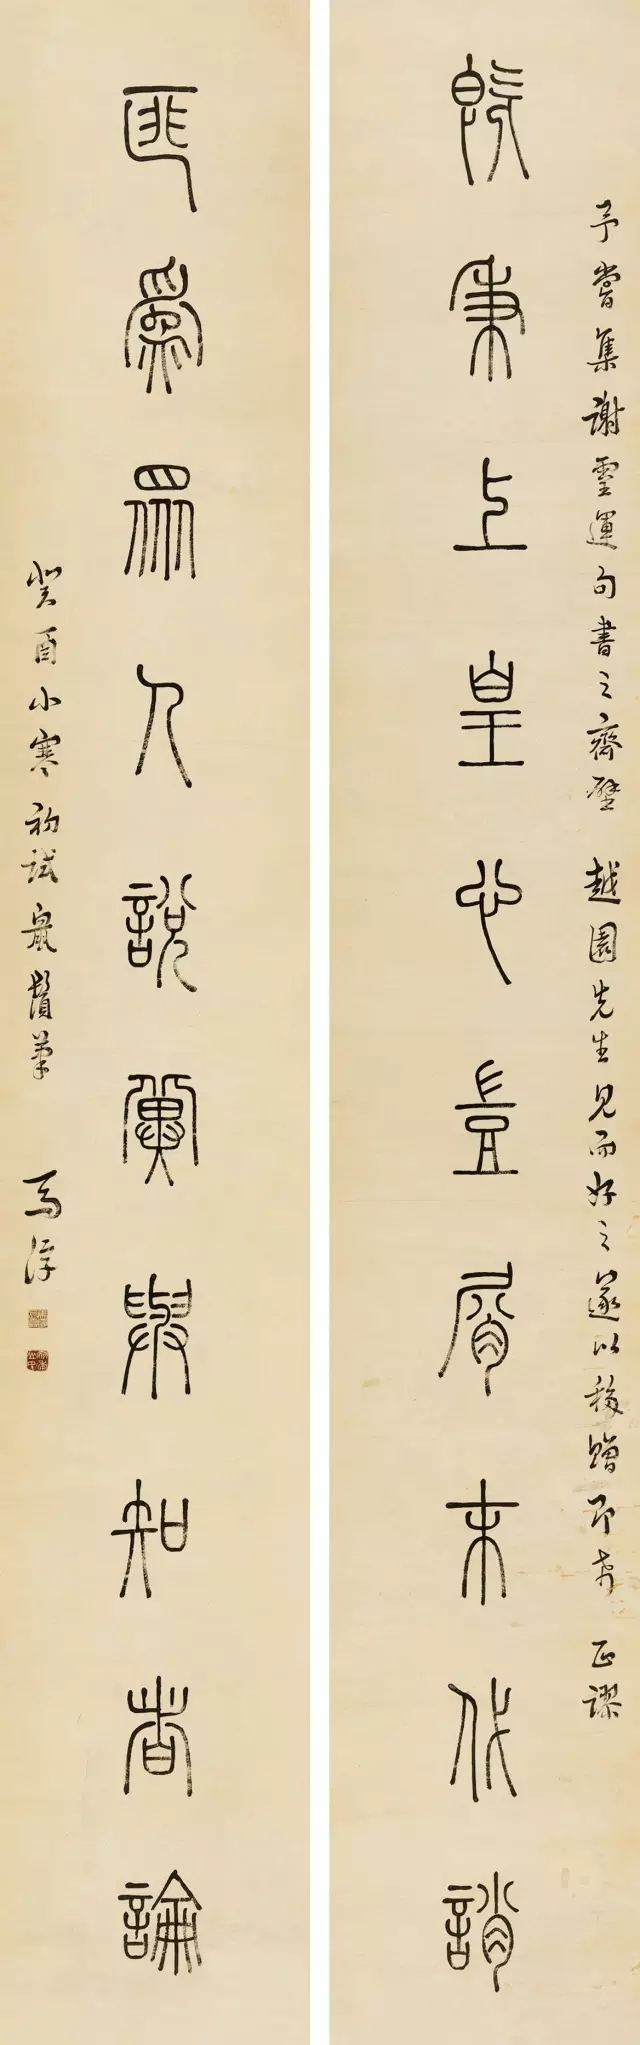 予嘗集謝靈運句書之齋壁 越園先生見而好之遂以移贈即希 正謬
既秉上皇心豈屑末代誚
匪爲眾人說冀與知者論
癸酉小寒初試鼠鬚筆 馬浮